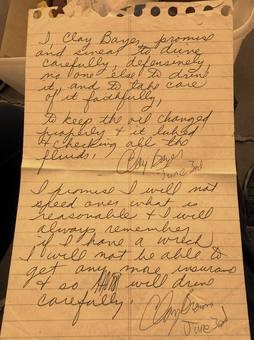 I, Clay Bayer, promise
and swear to drive
carefully, defensively
no one else to drive
it, and to take care
of it faithfully,
To keep the oil changed
properly & it lubed
& checking all the
fluids.
Clay Bayer
June 3rd
I promise I will not
speed over what is
reasonable & I will
always remember
if I have a wreck
I will not be able to
get any more insurance
& so will drive
carefully.
June 3rd